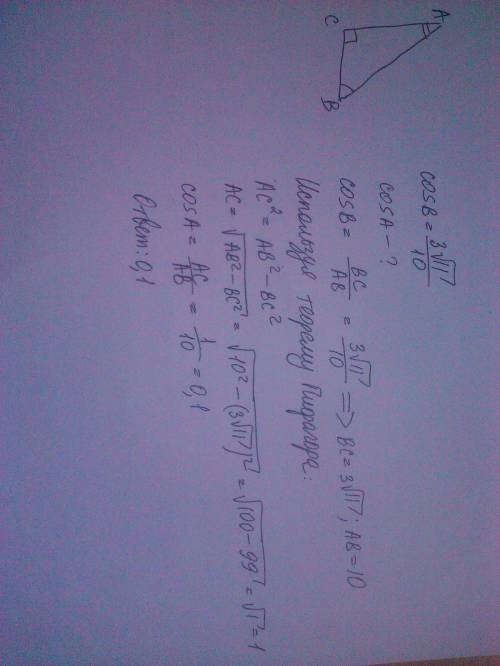 A
C
B
cosB = 3√11/10
cosA - ?
cosB = BC/AB = 3√11/10 => BC = 3√11; AB = 10
Используя теорему Пифагора:
AC² = AB² - BC²
AC = √(AB² - BC²) = √(10² - (3√11)²) = √(100 - 99) = √1 = 1
cosA = AC/AB = 1/10 = 0,1
Ответ: 0,1